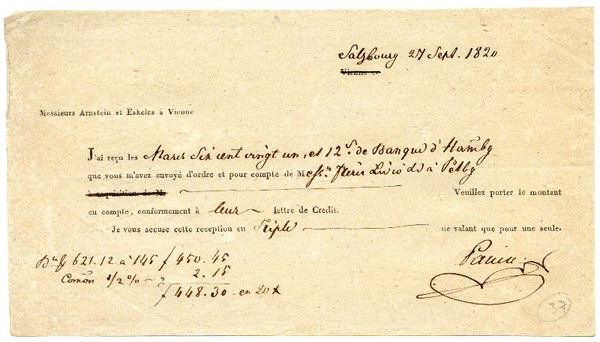 Salzbourg 27 Sept. 1820
Vienne ce
Messieurs Arnstein et Eskeles à Vienne
J'ai reçu les Marcs Six cent vingt un, et 12 s. de Banque d'Hambg
que vous m'avez envoyé d'ordre et pour compte de Mess. Livio à Petbg
à réquisition de M. Veuillez porter le montant
en compte, conformément à leur lettre de Credit.
Je vous accuse cette reception en Triple ne valant que pour une seule.
621.12 à 145 f 450.45
½ % 2.15
f 448.30 en 20 x
Panin